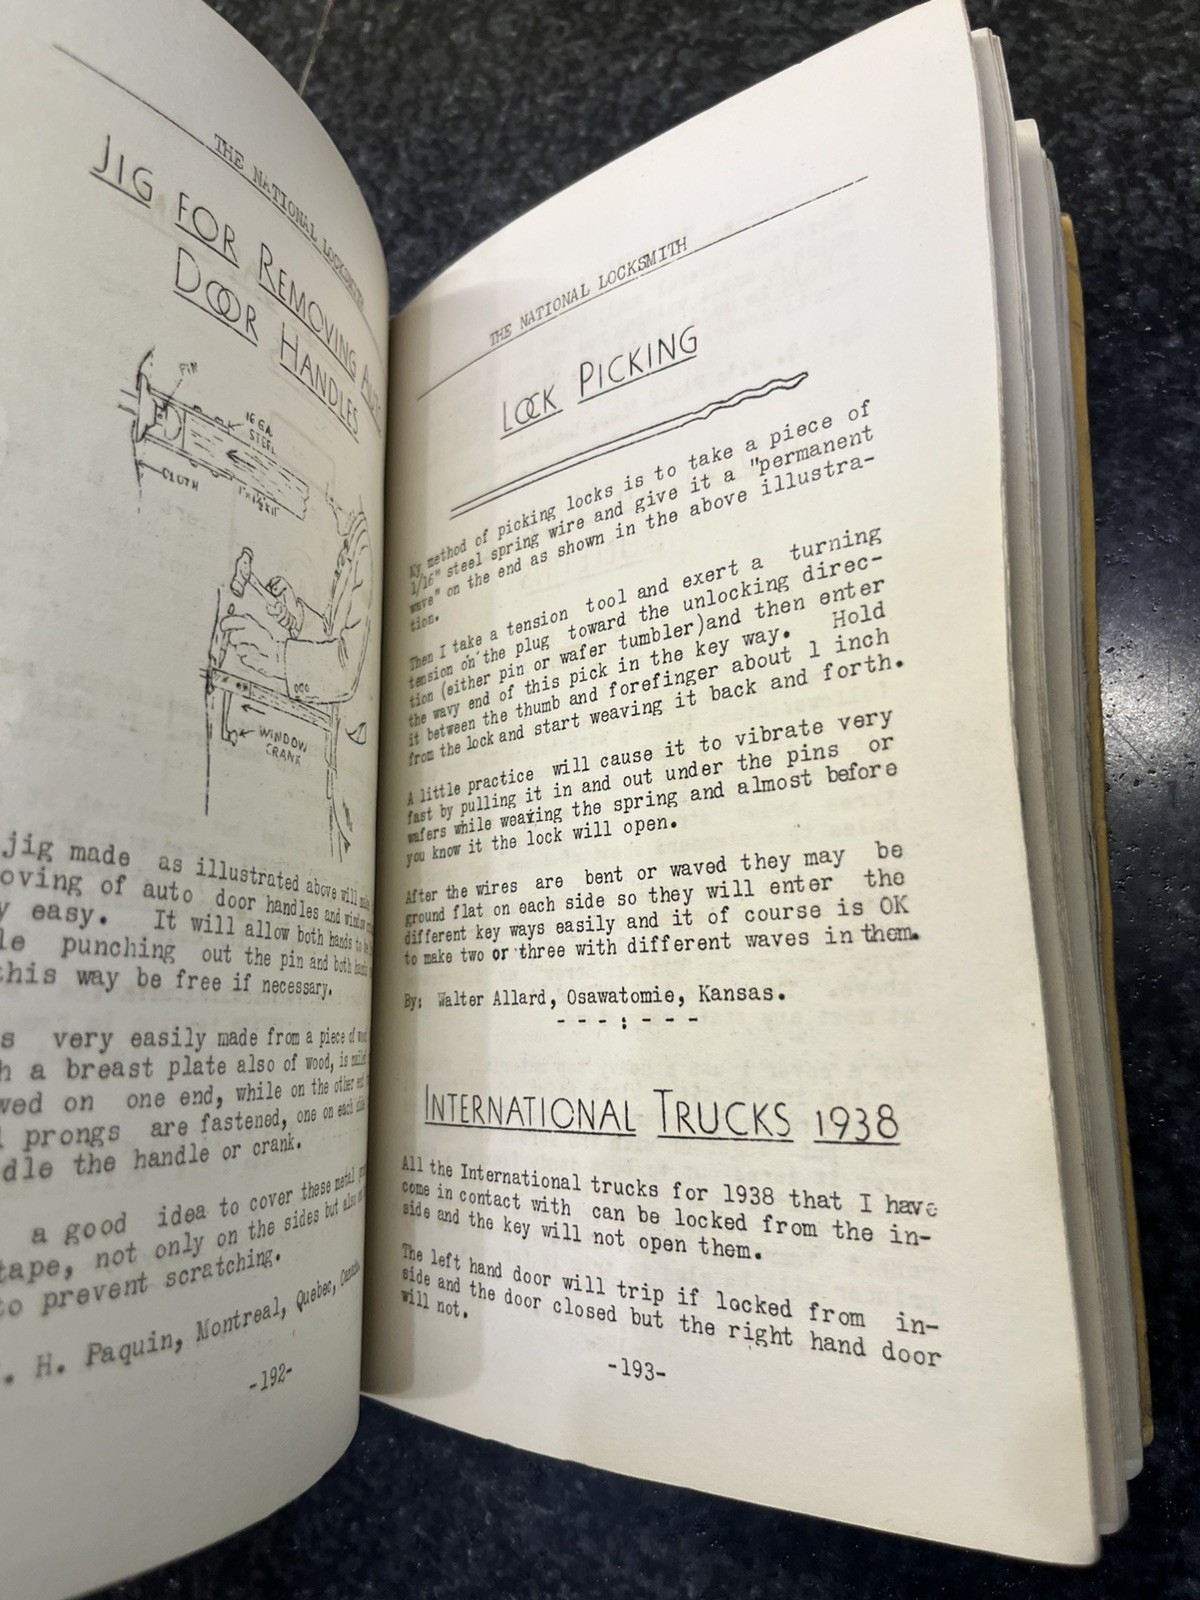 THE NATIONAL LOCKSMITH
JIG FOR REMOVING
DOOR HANDLES
PIN
16 GA.
STEEL
CLOTH
WINDOW
CRANK
jig made as illustrated above will
oving of auto door handles and window
y easy. It will allow both hands to be
le punching out the pin and both
this way be free if necessary.
s very easily made from a piece of
h a breast plate also of wood, is
wed on one end, while on the other end
prongs are fastened, one on each side
dle the handle or crank.
a good idea to cover these metal
tape, not only on the sides but also
to prevent scratching.
. H. Paquin, Montreal, Quebec, Canada.
-192-
THE NATIONAL LOCKSMITH
LOCK PICKING
My method of picking locks is to take a piece of
1/16" steel spring wire and give it a "permanent
wave" on the end as shown in the above illustra-
tion.
Then I take a tension tool and exert a turning
tension on the plug toward the unlocking direc-
tion (either pin or wafer tumbler)and then enter
the wavy end of this pick in the key way. Hold
it between the thumb and forefinger about 1 inch
from the lock and start weaving it back and forth.
A little practice will cause it to vibrate very
fast by pulling it in and out under the pins or
wafers while weaving the spring and almost before
you know it the lock will open.
After the wires are bent or waved they may be
ground flat on each side so they will enter the
different key ways easily and it of course is OK
to make two or three with different waves in them.
By: Walter Allard, Osawatomie, Kansas.
- - - : - - -
INTERNATIONAL TRUCKS 1938
All the International trucks for 1938 that I have
come in contact with can be locked from the in-
side and the key will not open them.
The left hand door will trip if locked from in-
side and the door closed but the right hand door
will not.
-193-